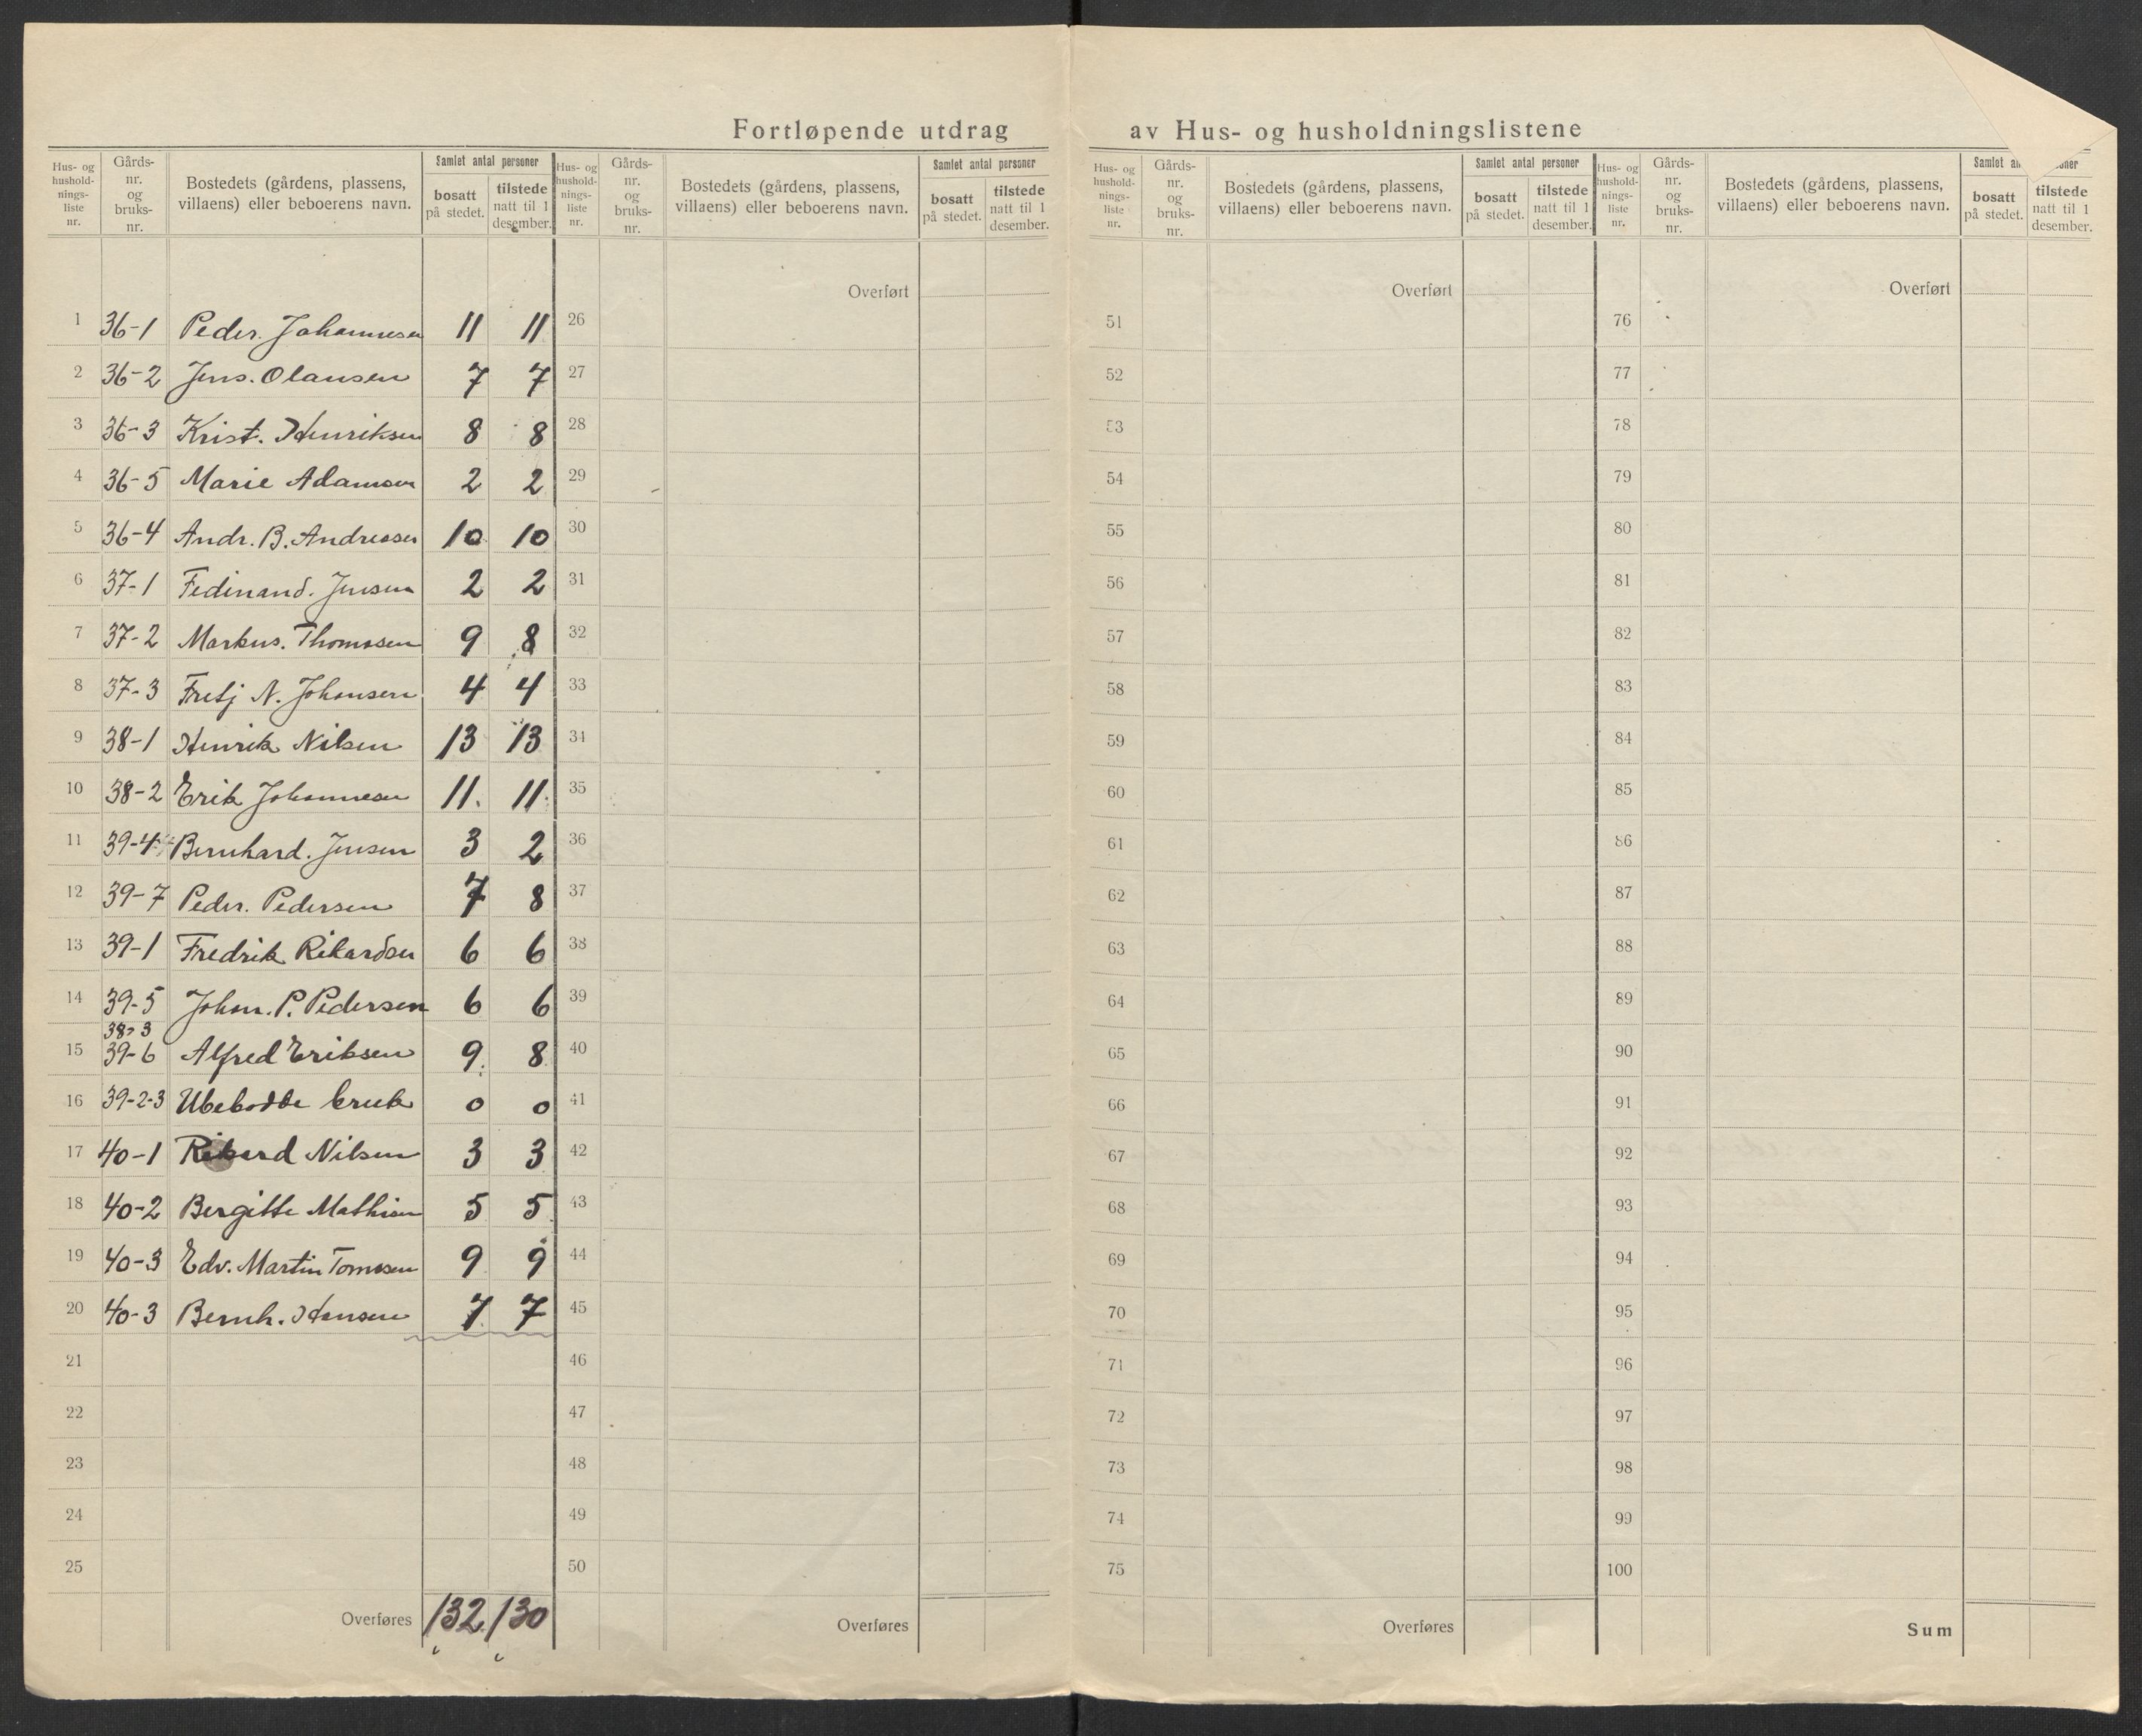 Fortløpende utdrag av Hus- og husholdningslistene
Hus- og hushold- nings- liste nr.
Gårds- nr. og bruks- nr.
Bostedets (gårdens, plassens, villaens) eller beboerens navn.
Samlet antal personer
bosatt på stedet.
tilstede natt til 1 desember.
1 36-1 Peder. Johannesen 11 11
2 36-2 Jens. Olausen 7 7
3 36-3 Krist. Henriksen 8 8
4 36-5 Marie Adamsen 2 2
5 36-4 Andr. B. Andreasen 10 10
6 37-1 Fedinand. Jensen 2 2
7 37-2 Markus. Thomasen 9 8
8 37-3 Fretj N. Johansen 4 4
9 38-1 Henrik Nilsen 13 13
10 38-2 Erik Johannesen 11. 11.
11 39-4 Bernhard. Jensen 3 2
12 39-7 Peder. Pedersen 7 8
13 39-1 Fredrik Rikardsen 6 6
14 39-5 Johan. P. Pedersen 6 6
38-3
15 39-6 Alfred Eriksen 9. 8
16 39-2-3 Ubebodde bruk 0 0
17 40-1 Rikard Nilsen 3 3
18 40-2 Bergitte Mathisen 5 5
19 40-3 Edv. Martin Tomasen 9 9
20 40-3 Bernh. Hansen 7 7
21
22
23
24
25
Overføres 132 130
Hus- og hushold- nings- liste nr.
Gårds- nr. og bruks- nr.
Bostedets (gårdens, plassens, villaens) eller beboerens navn.
Samlet antal personer
bosatt på stedet.
tilstede natt til 1 desember.
Overført
26
27
28
29
30
31
32
33
34
35
36
37
38
39
40
41
42
43
44
45
46
47
48
49
50
Overføres
Hus- og hushold- nings- liste nr.
Gårds- nr. og bruks- nr.
Bostedets (gårdens, plassens, villaens) eller beboerens navn.
Samlet antal personer
bosatt på stedet.
tilstede natt til 1 desember.
Overført
51
52
53
54
55
56
57
58
59
60
61
62
63
64
65
66
67
68
69
70
71
72
73
74
75
Overføres
Hus- og hushold- nings- liste nr.
Gårds- nr. og bruks- nr.
Bostedets (gårdens, plassens, villaens) eller beboerens navn.
Samlet
bosatt på stedet.
tilstede natt til 1 desember.
Overført
76
77
78
79
80
81
82
83
84
85
86
87
88
89
90
91
92
93
94
95
96
97
98
99
100
Sum